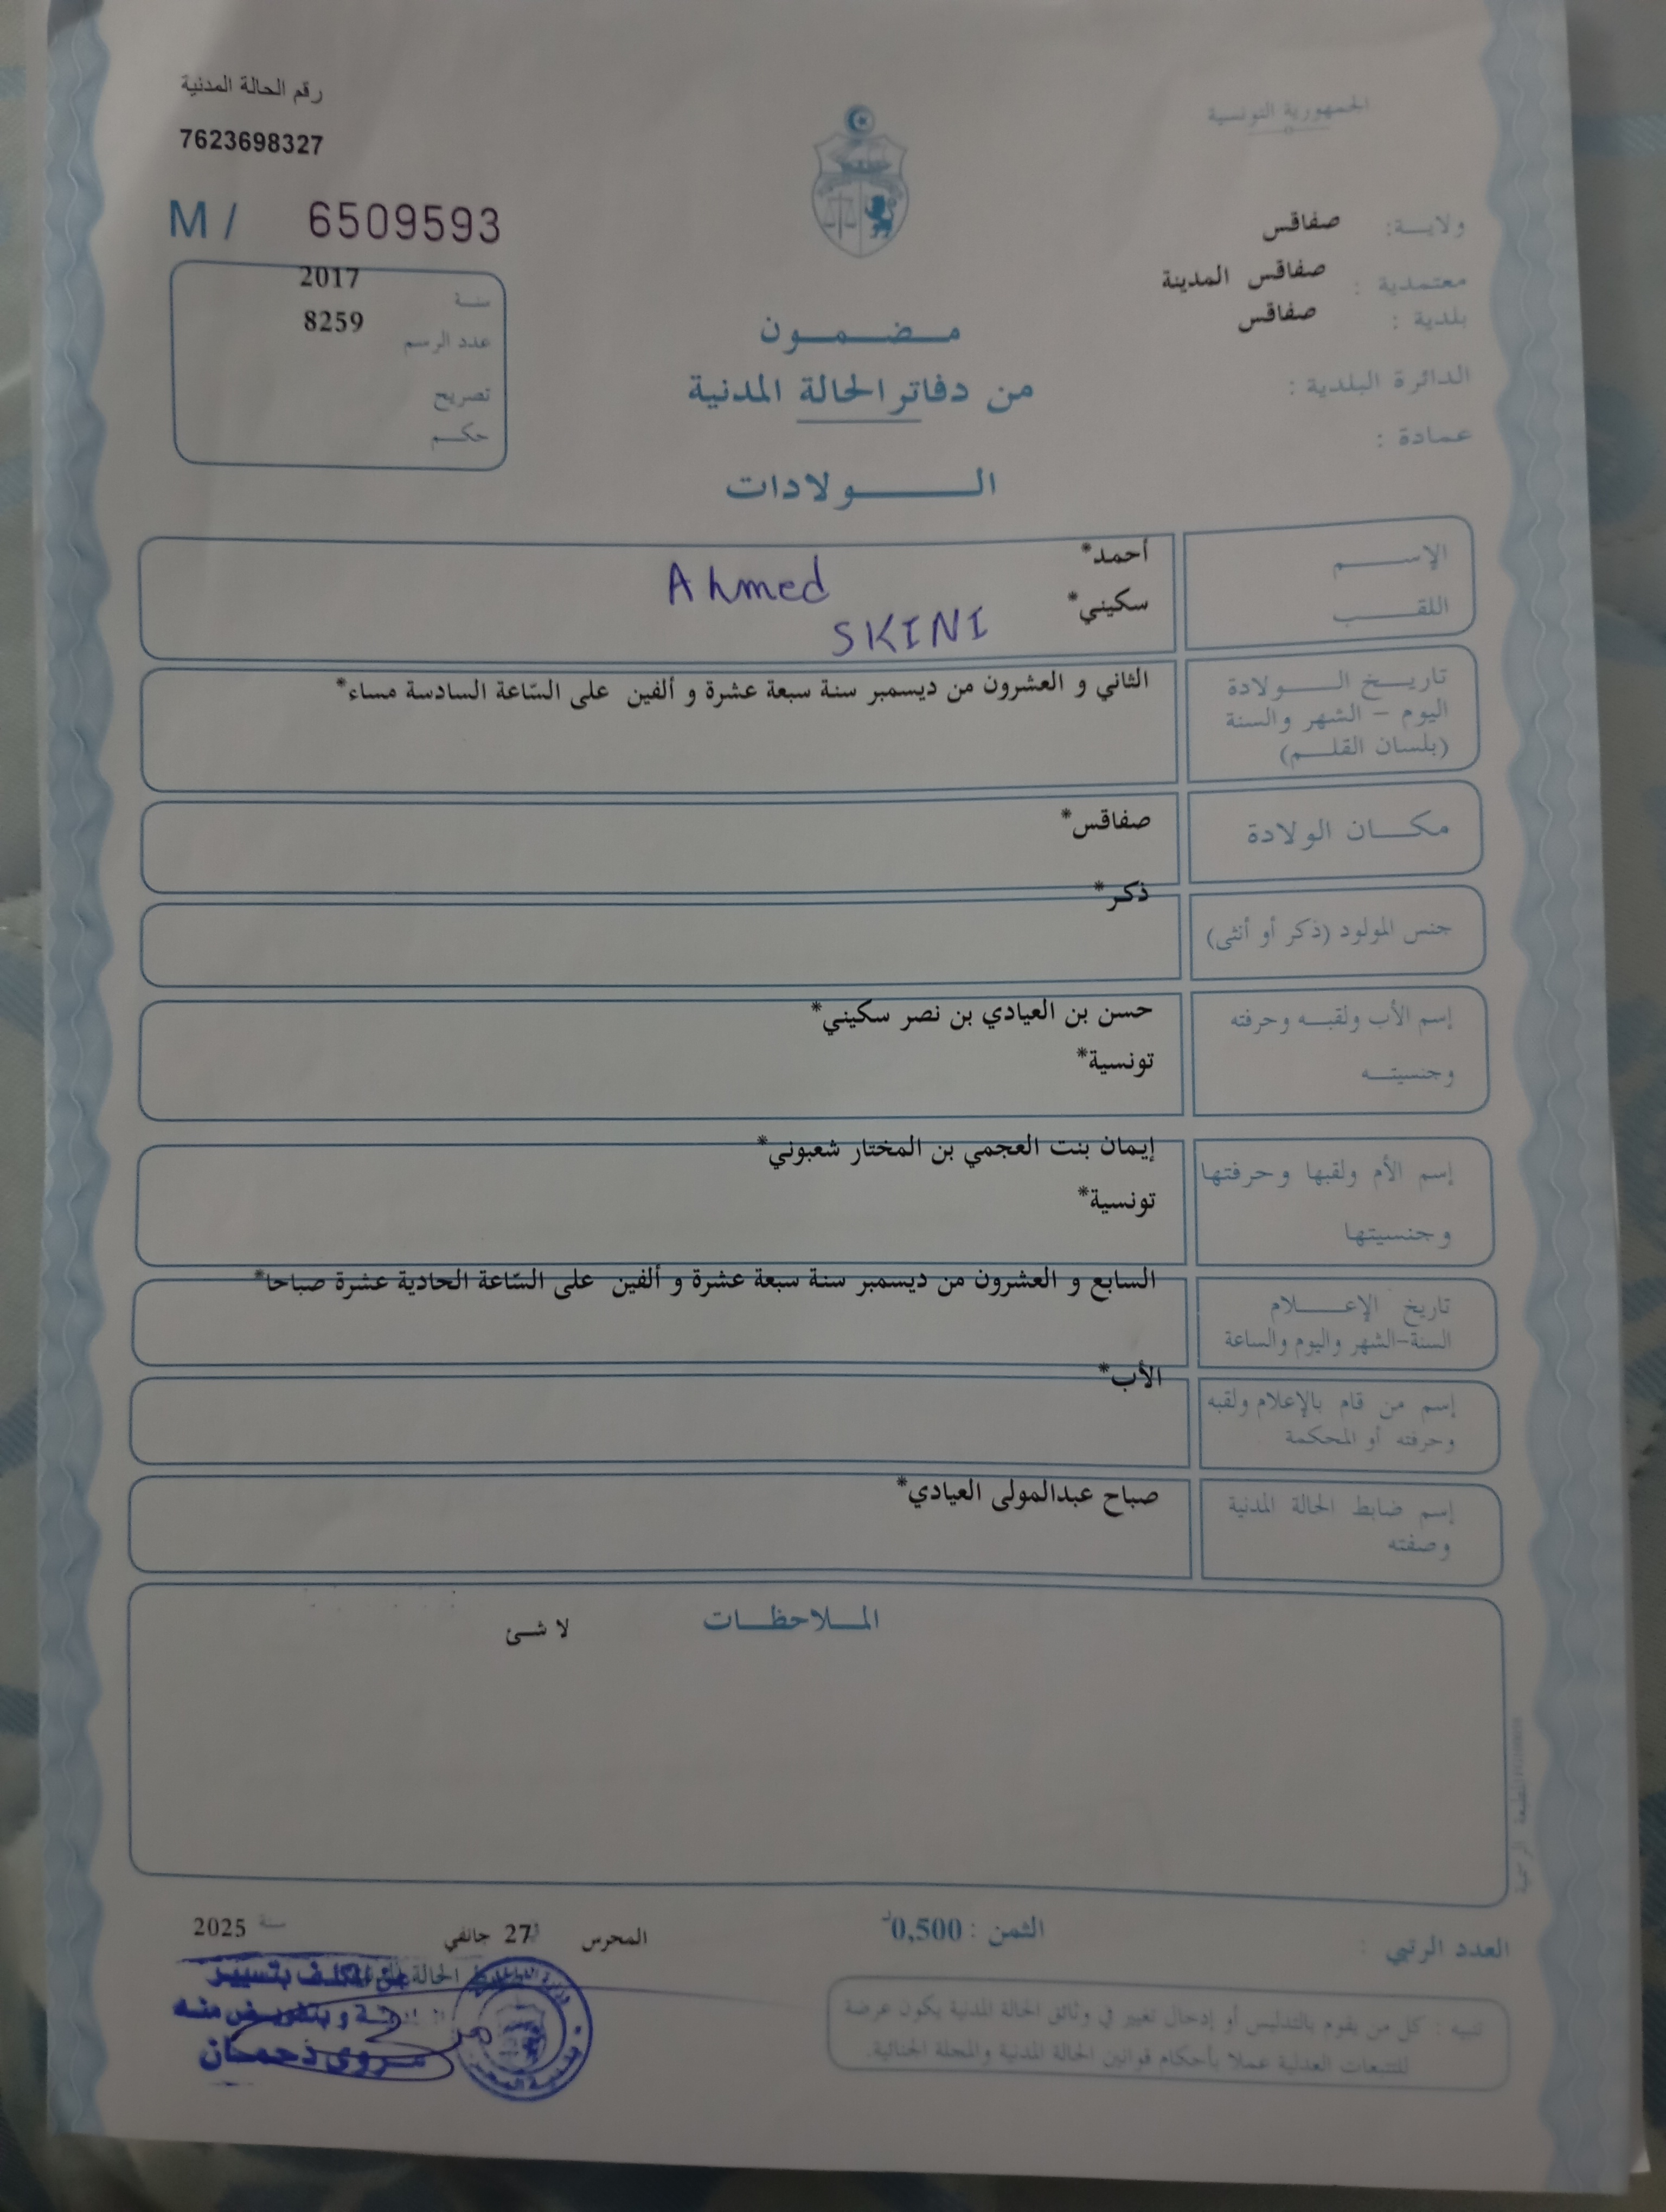 الجمهورية التونسية
رقم الحالة المدنية
7623698327
M / 6509593
ولايـة: صفاقس
معتمدية : صفاقس المدينة
بلدية : صفاقس
الدائرة البلدية :
عمادة :
سنـة 2017
عدد الرسم 8259
تصريح
حكـم
مـضـمـون
من دفاتر الحالة المدنية
الـولادات
الإسـم أحمد*
Ahmed
اللقـب سكيني*
SKINI
تاريـخ الـولادة
اليوم – الشهر والسنة
(بلسان القلـم)
الثاني و العشرون من ديسمبر سنة سبعة عشرة و ألفين على السّاعة السادسة مساء*
مكـان الولادة صفاقس*
جنس المولود (ذكر أو أنثى) ذكر*
إسم الأب ولقبـه وحرفته حسن بن العيادي بن نصر سكيني*
وجنسيتـه تونسية*
إسم الأم ولقبها وحرفتها إيمان بنت العجمي بن المختار شعبوني*
وجنسيتها تونسية*
تاريخ الإعـلام
السنة-الشهر واليوم والساعة
السابع و العشرون من ديسمبر سنة سبعة عشرة و ألفين على السّاعة الحادية عشرة صباحا*
إسم من قام بالإعلام ولقبه
وحرفته أو المحكمة
الأب*
إسم ضابط الحالة المدنية
وصفته
صباح عبدالمولى العيادي*
المـلاحظـات
لا شئ
العدد الرتبي :
الثمن : 0,500د
المحرس 27 جانفي سنة 2025
تنبيه : كل من يقوم بالتدليس أو إدخال تغيير في وثائق الحالة المدنية يكون عرضة
للتتبعات العدلية عملا بأحكام قوانين الحالة المدنية والمجلة الجنائية.
المكلف بتسيير
وبتفويض منه
مـروى دحمـان